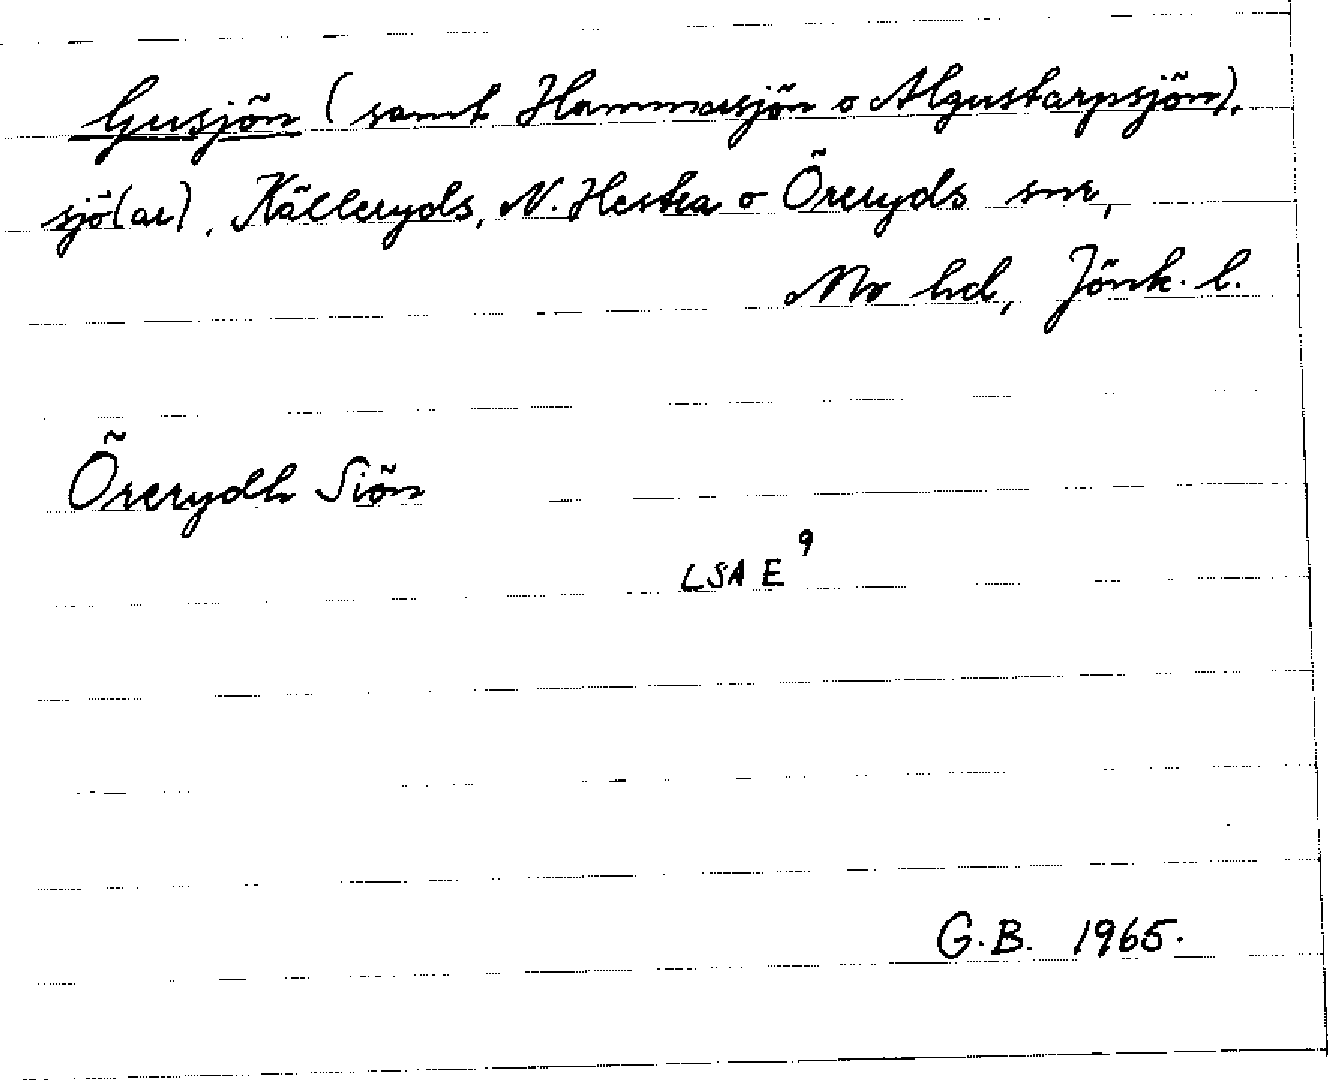 Gusjön (samt Hammarsjön o Algustarpsjön),
sjö(ar), Källeryds, N. Hestra o Öreryds snr,
Mo hd, Jönk. l.
Örerydh Siön
LSA E 9
G.B. 1965.